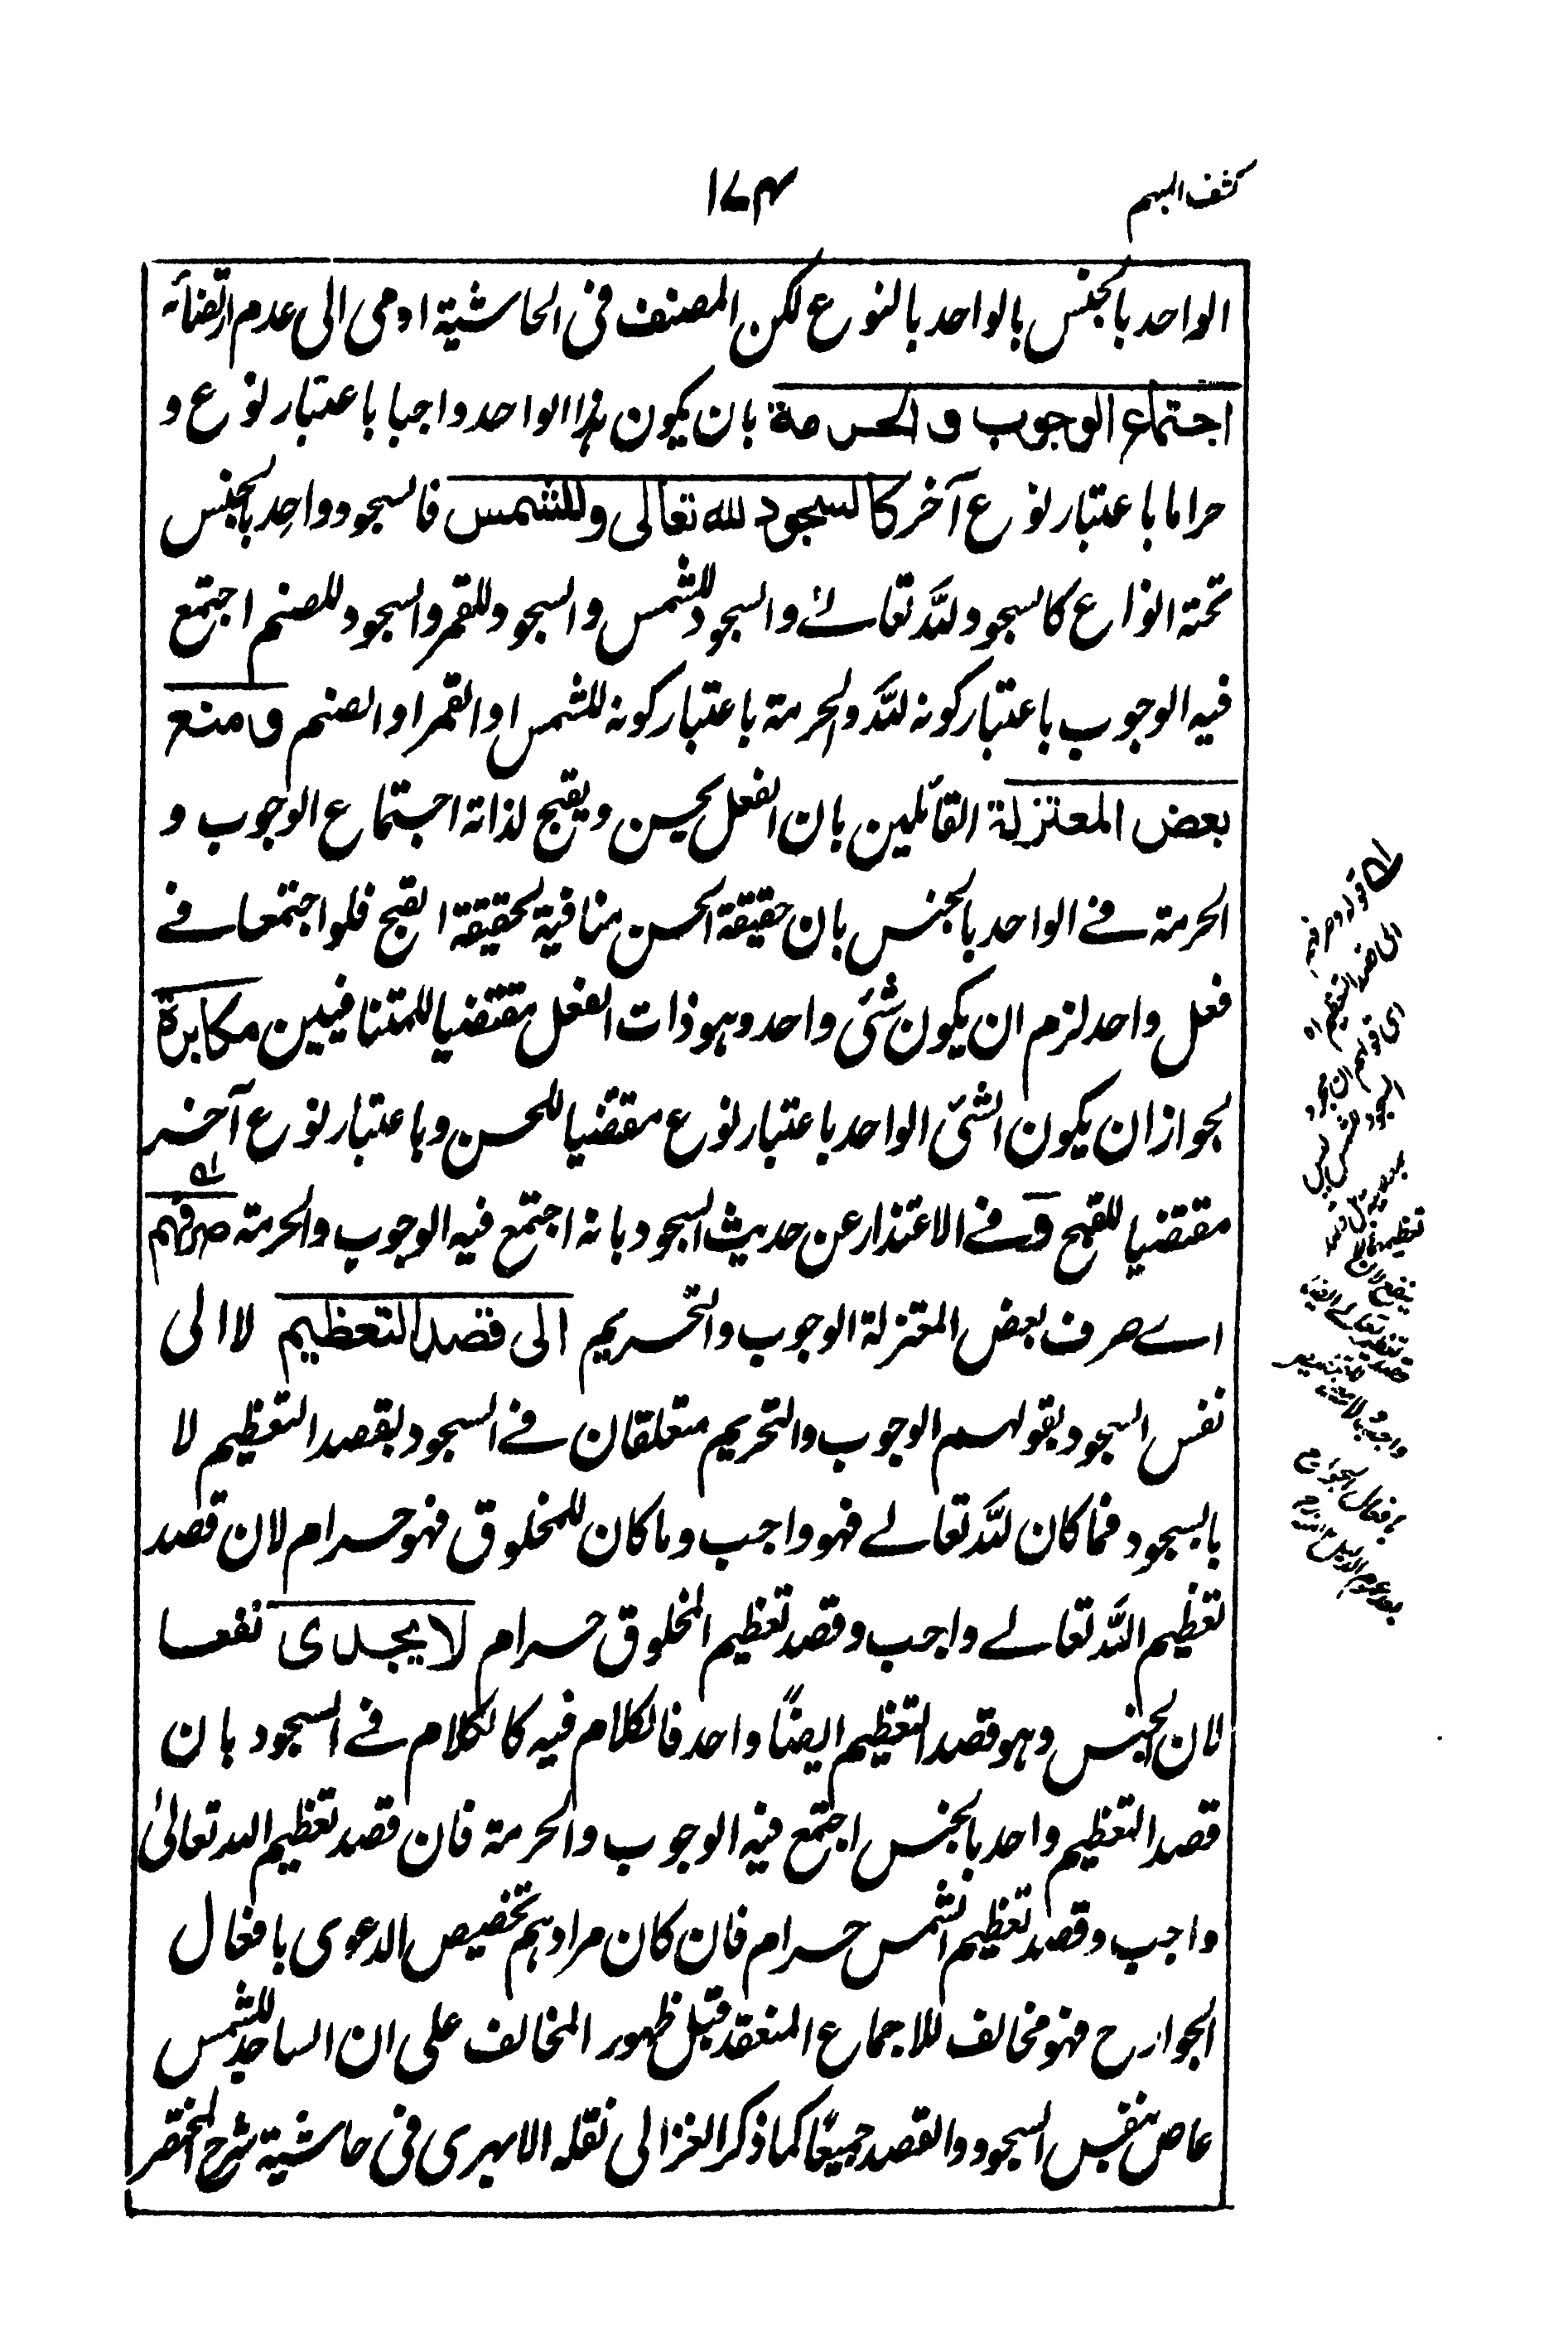 كشف المبهم
۱۷۴
الواحد بالجنس بالواحد بالنوع لكن المصنف في الحاشية اومى الى عدم ارتضائه
اجتماع الوجوب والحرمة بان يكون هذا الواحد واجبا باعتبار نوع و
حراما باعتبار نوع آخر كالسجود لله تعالى وللشمس فالسجود واحد بالجنس
تحته انواع كالسجود لله تعالى والسجود للشمس والسجود للقمر والسجود للصنم اجتمع
فيه الوجوب باعتبار كونه لله والحرمة باعتبار كونه للشمس او القمر او الصنم ومنع
بعض المعتزلة القائلين بان الفعل يحسن ويقبح لذاته اجتماع الوجوب و
الحرمة في الواحد بالجنس بان حقيقة الحسن منافية لحقيقة القبح فلو اجتمعا في
فعل واحد لزم ان يكون شئ واحد وهو ذات الفعل مقتضيا للمتنافيين مكابرة
لجواز ان يكون الشئ الواحد باعتبار نوع مقتضيا للحسن وباعتبار نوع آخر
مقتضيا للقبح و في الاعتذار عن حديث السجود بانه اجتمع فيه الوجوب والحرمة صرفهم
اى صرف بعض المعتزلة الوجوب والتحريم الى قصد التعظيم لا الى
نفس السجود بقولهم الوجوب والتحريم متعلقان في السجود بقصد التعظيم لا
بالسجود فما كان لله تعالى فهو واجب وما كان للمخلوق فهو حرام لان قصد
تعظيم الله تعالى واجب وقصد تعظيم المخلوق حرام لا يجدى نفعا
لان الجنس وهو قصد التعظيم ايضًا واحد فالكلام فيه كالكلام في السجود بان
قصد التعظيم واحد بالجنس اجتمع فيه الوجوب والحرمة فان قصد تعظيم الله تعالىٰ
واجب وقصد تعظيم الشمس حرام فان كان مرادهم تخصيص الدعوى بافعال
الجوارح فهو مخالف للاجماع المنعقد قبل ظهور المخالف على ان الساجد للشمس
عاص بنفس السجود والقصد جميعًا كما ذكر الغزالى نقله الابهرى في حاشية شرح المختصر
قوله وصرفهم
الى قصد التعظيم اه